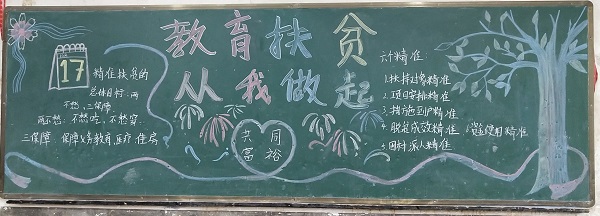 教育扶贫
从我做起
17
精准扶贫的
总体目标：两
不愁，三保障
两不愁：不愁吃，不愁穿
三保障 保障义务教育，医疗，住房
共同
富裕
六个精准：
1.扶持对象精准
2.项目安排精准
3.措施到户精准
4.脱贫成效精准 6资金使用精准
5.因村派人精准